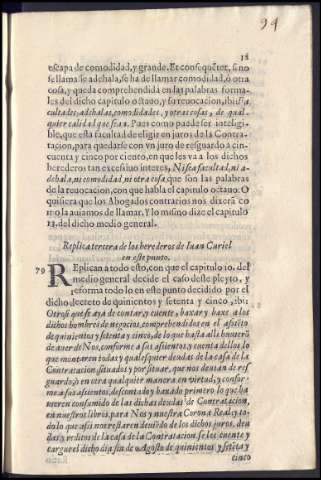 94
32
escapa de comodidad, y grande. Et consequēter, si no
se llama se adehala, se ha de llamar comodidad, ó otra
cosa, y queda comprehendida en las palabras forma-
les del dicho capitulo octauo, y su reuocacion, ibi: fa
cultades, adehalas, comodidades, y otras cosas, de qual-
quier calidad que sean. Pues como puede ser inteligi-
ble, que esta facultad de eligir en juros de la Contra-
tacion, para quedarse con vn juro de resguardo à cin-
cuenta y cinco por ciento, en que les va a los dichos
herederos tan excessiuo interes, Ni sea facultad, ni a-
dehala, ni comodidad, ni otra cosa, que son las palabras
de la reuocacion, con que habla el capitulo octauo. O
quisiera que los Abogados contrarios nos dixerā co-
mo la auiamos de llamar. Y lo mismo dize el capitulo
23. del dicho medio general.
Replica tercera de los herederos de Iuan Curiel
en este punto.
79 Replican a todo esto, con que el capitulo 10. del
medio general decide el caso deste pleyto, y
reforma todo lo en este punto decidido por el
dicho decreto de quinientos y setenta y cinco, ibi:
Otrosi que se aya de contar, y cuente, baxar y baxe a los
dichos hombres de negocios, comprehendidos en el assiēto
de quinientos y setenta y cinco, de lo que hasta alli huuierē
de auer de Nos, conforme a sus assientos, y cuenta dellos, lo
que montaren todas y qualesquier deudas de la casa de la
Contratacion situados y por situar, que nos deuan de res
guardo, ò en otra qualquier manera en virtud, y confor-
me a sus assientos, descontado y baxado primero lo que ha
uieren consumido de las dichas deudas de Contratacion,
en nuestros libros, para Nos y nuestra Corona Real, y to-
do lo que assi nos restaren deuiēdo de los dichos juros, deu
das y reditos de la casa de la Contratacion, se les cuente y
cargue el dicho dia fin de Agosto de quinientos y setēta y
cinco